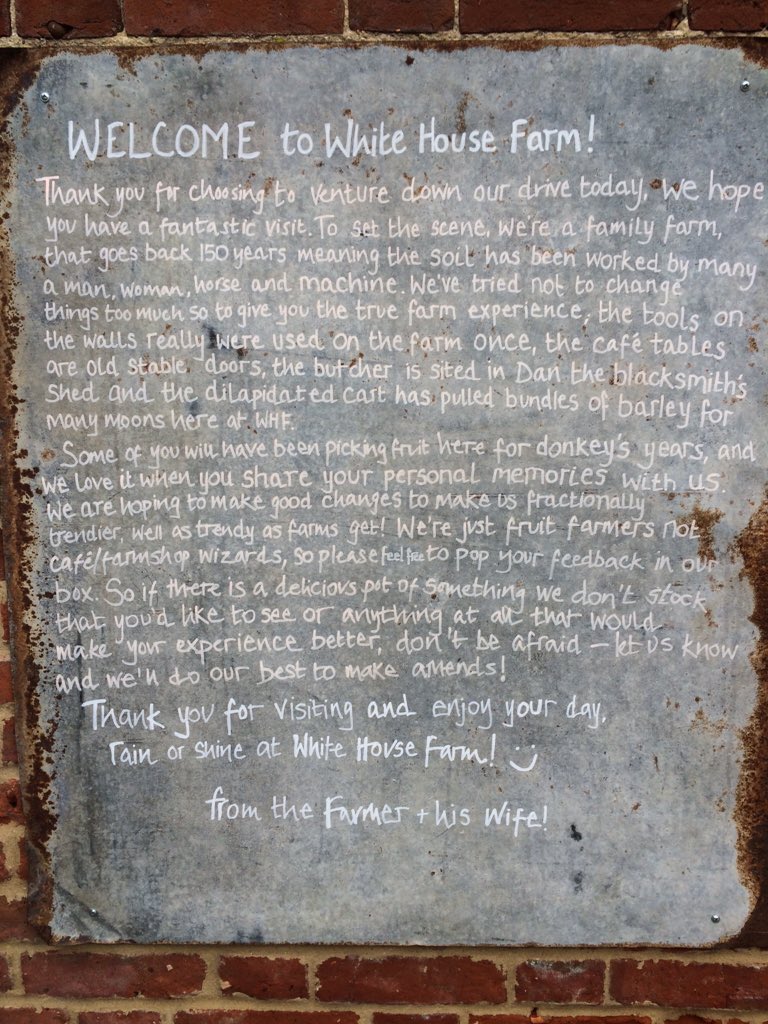 WELCOME to White House Farm!
Thank you for choosing to venture down our drive today, we hope
you have a fantastic visit. To set the scene, we're a family farm,
that goes back 150 years meaning the soil has been worked by many
a man, woman, horse and machine. We've tried not to change
things too much so to give you the true farm experience; the tools on
the walls really were used on the farm once, the café tables
are old stable doors, the butcher is sited in Dan the blacksmith's
shed and the dilapidated cart has pulled bundles of barley for
many moons here at WHF.
Some of you will have been picking fruit here for donkey's years, and
we love it when you share your personal memories with us.
We are hoping to make good changes to make us fractionally
trendier, well as trendy as farms get! We're just fruit farmers not
café/farmshop wizards, so please feel free to pop your feedback in our
box. So if there is a delicious pot of something we don't stock
that you'd like to see or anything at all that would
make your experience better, don't be afraid – let us know
and we'll do our best to make amends!
Thank you for visiting and enjoy your day,
rain or shine at White House Farm! :)
from the Farmer + his Wife!